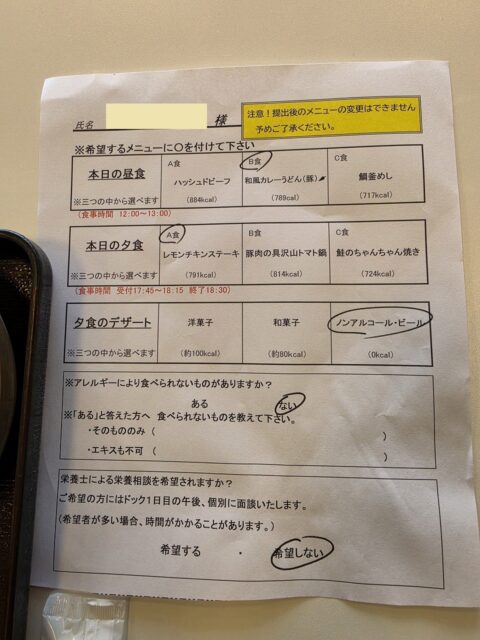 氏名 様
注意！提出後のメニューの変更はできません
予めご了承ください。
※希望するメニューに〇を付けて下さい
本日の昼食
※三つの中から選べます
A食
ハッシュドビーフ
(884kcal)
B食
和風カレーうどん(豚)
(789cal)
C食
鯛釜めし
(717kcal)
(食事時間 12:00～13:00)
本日の夕食
※三つの中から選べます
A食
レモンチキンステーキ
(791kcal)
B食
豚肉の具沢山トマト鍋
(814kcal)
C食
鮭のちゃんちゃん焼き
(724kcal)
(食事時間 受付17:45～18:15 終了18:30)
夕食のデザート
※三つの中から選べます
洋菓子
(約100kcal)
和菓子
(約80kcal)
ノンアルコール・ビール
(0kcal)
※アレルギーにより食べられないものがありますか？
ある ない
※「ある」と答えた方へ 食べられないものを教えて下さい。
・そのもののみ ( )
・エキスも不可 ( )
栄養士による栄養相談を希望されますか？
ご希望の方にはドック1日目の午後、個別に面談いたします。
(希望者が多い場合、時間がかかることがあります。)
希望する ・ 希望しない